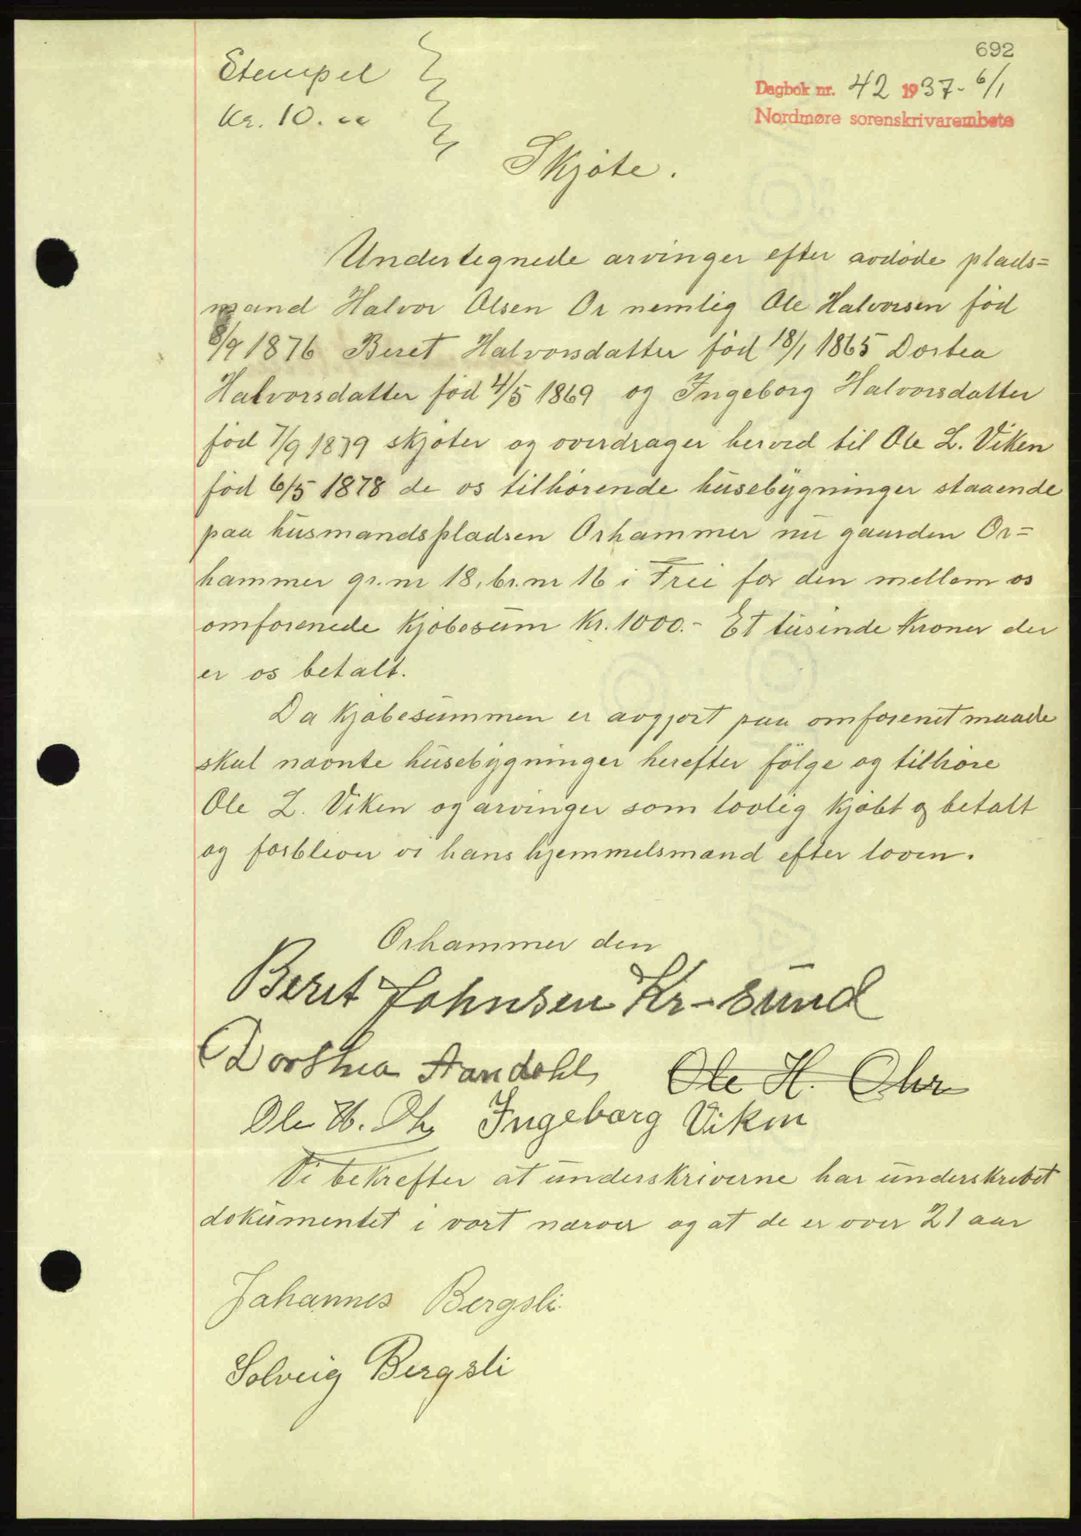 692
Stempel
Kr. 10.00
Dagbok nr. 42 1937 - 6/1
Nordmøre sorenskrivarembete
Skjøte.
Undertegnede arvinger efter avdøde plads=
mand Halvor Olsen Or nemlig Ole Halvorsen fød
8/9 1876 Beret Halvorsdatter fød 18/1 1865 Dortea
Halvorsdatter fød 4/5 1869 og Ingeborg Halvorsdatter
fød 7/9 1879 skjøter og overdrager herved til Ole L. Viken
fød 6/5 1878 de os tilhørende husebygninger staaende
paa husmandspladsen Orhammer nu gaarden Or=
hammer gr. nr 18, br. nr 16 i Frei for den mellem os
omforenede kjøbesum Kr. 1000.- Et tusinde kroner der
er os betalt.
Da kjøbesummen er avgjort paa omforenet maade
skal nævnte husebygninger herefter følge og tilhøre
Ole L. Viken og arvinger som lovlig kjøbt og betalt
og forbliver vi hans hjemmelsmænd efter loven.
Orhammer den
Beret Johnsen Kr-sund
Dorthea Aandahl, Ole H. Ohr
Ole H. Ohr Ingeborg Viken
Vi bekrefter at underskriverne har underskrevet
dokumentet i vort nærver og at de er over 21 aar
Johannes Bergsli
Solveig Bergsli